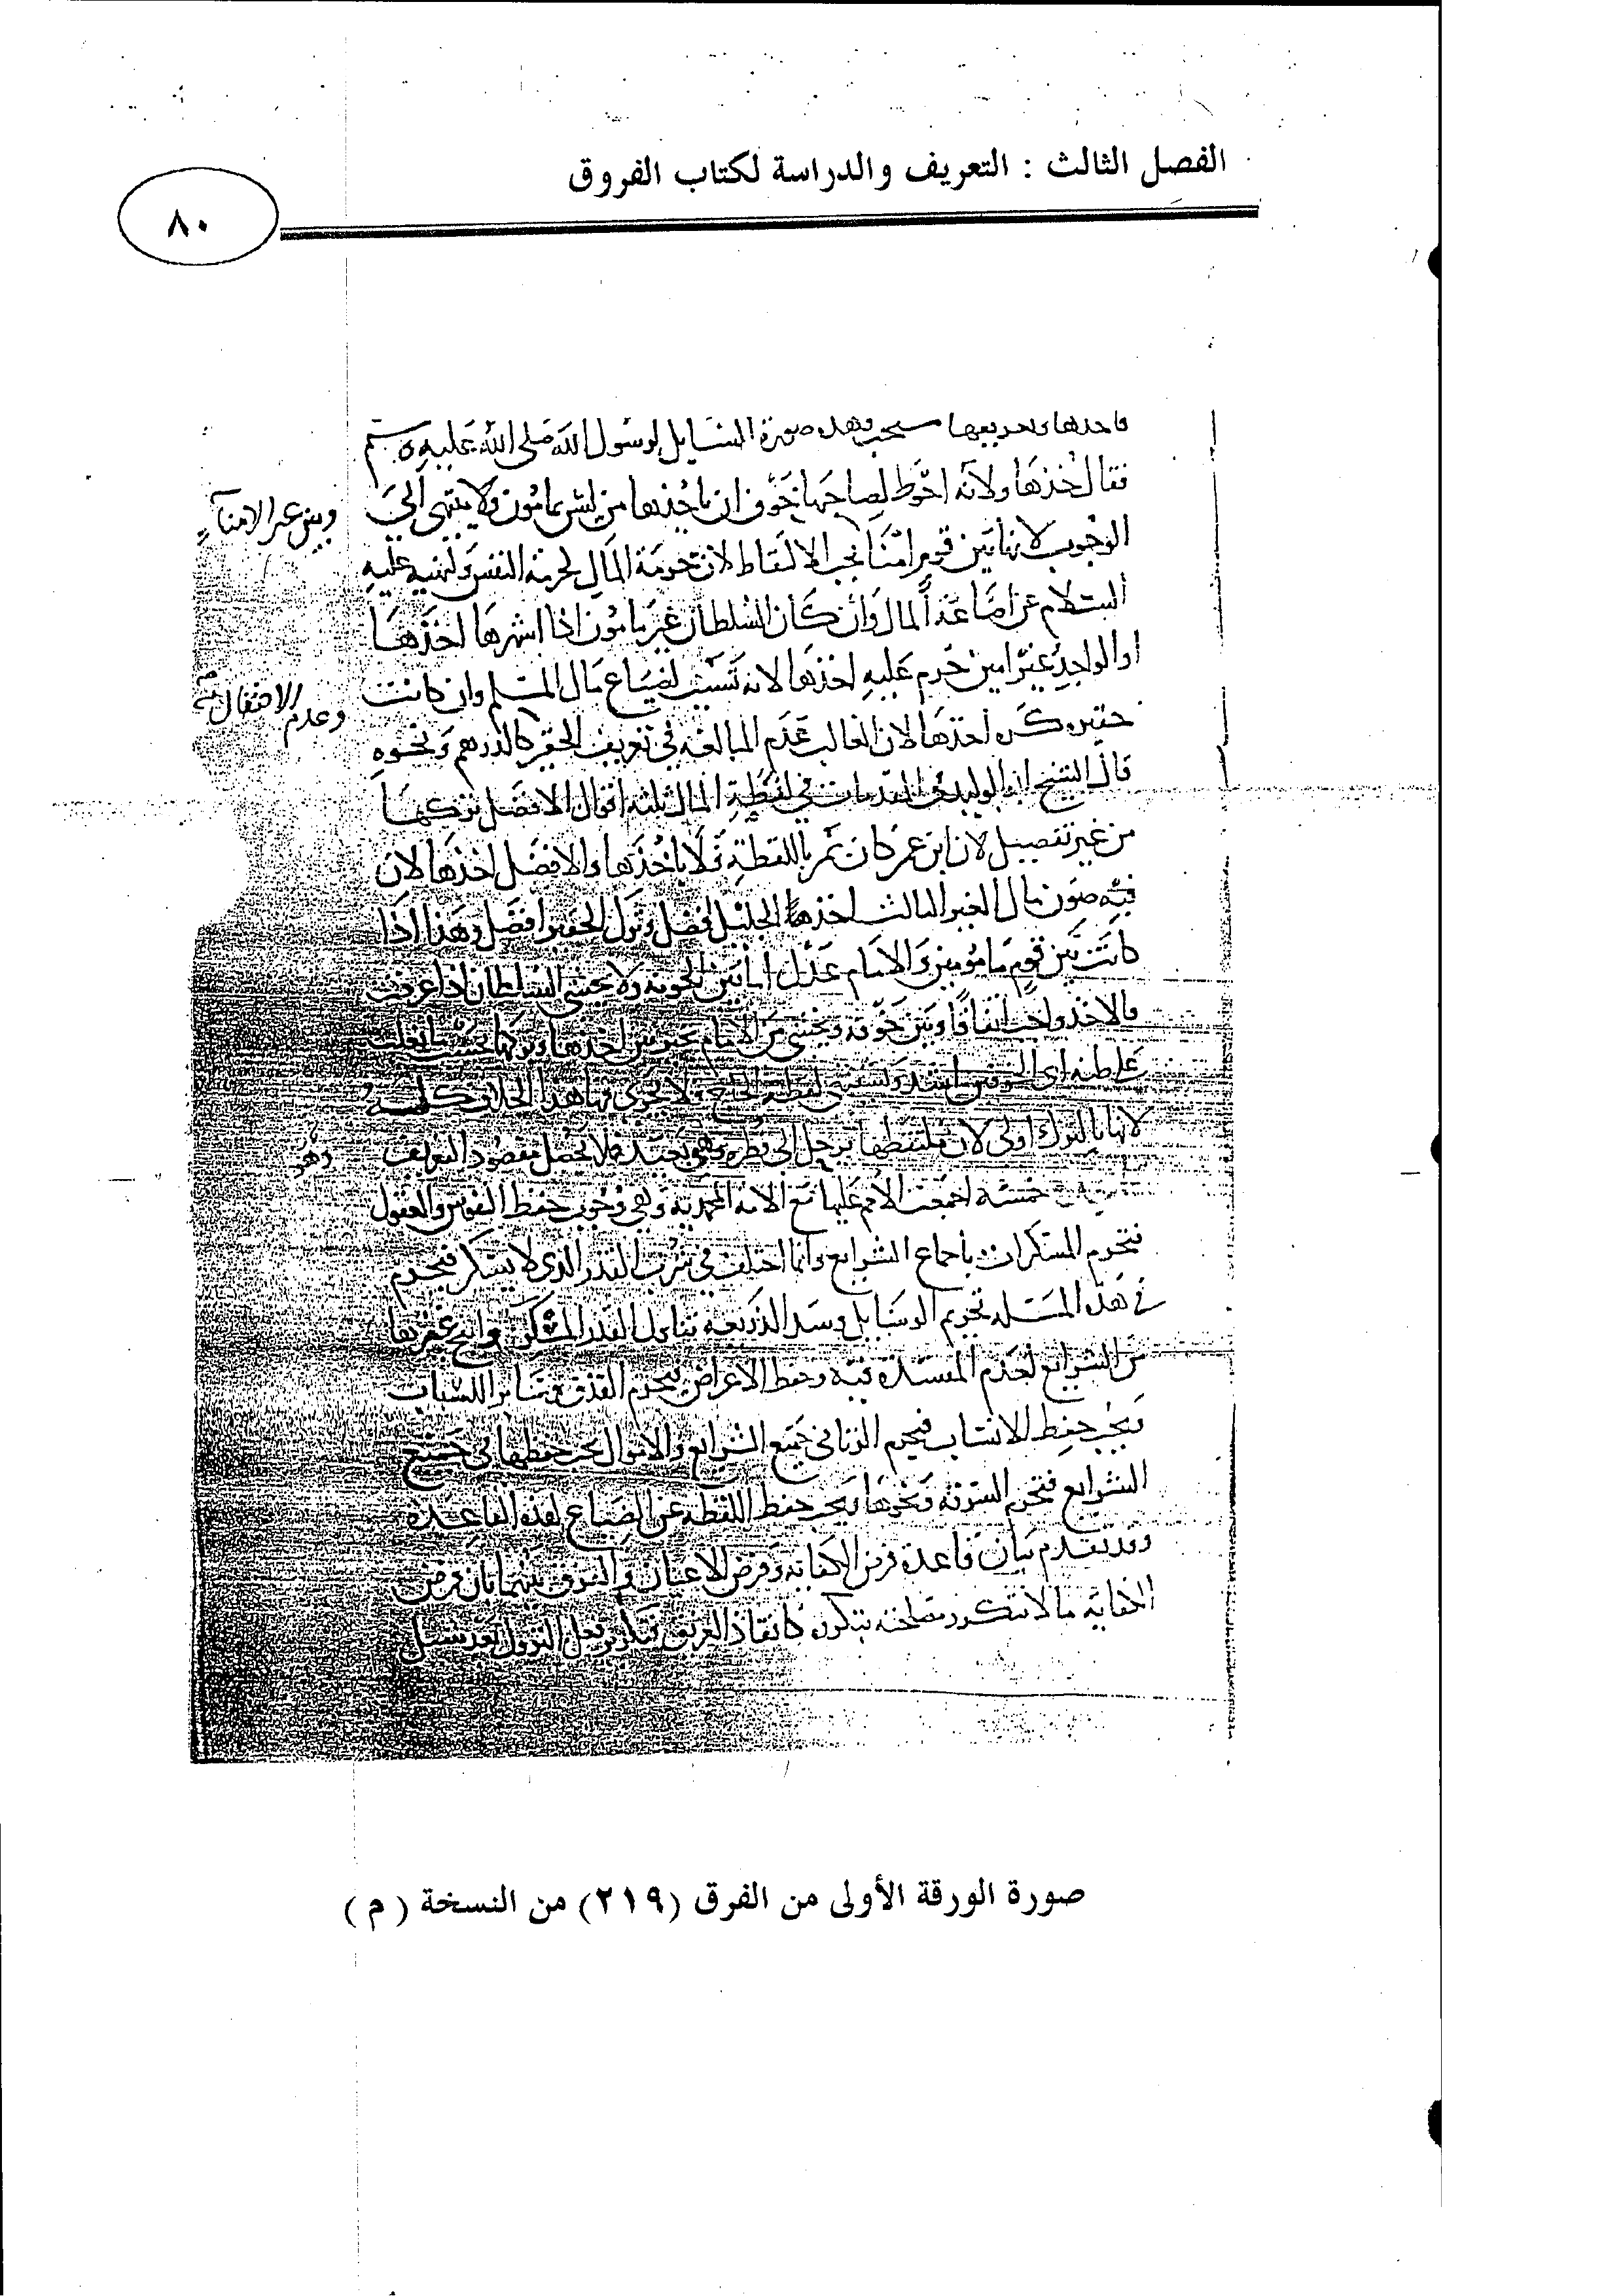 الفصل الثالث : التعريف والدراسة لكتاب الفروق
٨٠
مستحب وهذه صورة السايل لرسول الله صلى الله عليه وسلم
فقال خذها ولانه احوط لصاحبها خوف ان ياخذها من ليس بمامون ولا ينتهي الى
وبين غير الامناء
الوجوب لانها بين قوم امنا يجب الالتقاط لان حرمة المال لحرمة النفس ولنهيه عليه
السلام عن اضاعة المال وان كان السلطان غير مامون اذا اشهرها اخذها
او الواجد غير امين حرم عليه اخذها لانه تسبب لضياع مال المسلم وان كانت
وعدم الاحتفال
حقيره كره اخذها لان الغالب عدم المبالغه في تعريف الحقير كالدرهم ونحوه
قال الشيخ ابو الوليد في المقدمات في لقطة المال ثلثة اقوال الافضل تركها
من غير تفصيل لان ابن عمر كان يمر باللقطة فلا ياخذها والافضل اخذها لان
فيه صون مال الغير الثالث اخذ الجليل افضل وترك الحقير افضل وهذا اذا
كانت بين قوم مامونين والامام عدل اما بين الخونة ولا يخشى السلطان اذا عرفت
فالاخذ واجب اتفاقا وبين خونة ويخشى من الامام
على ظنه اي الخوفين اشد ويستثنى لقطة الحاج ولا يجري فيها هذا الخلاف كله
لانها بالترك اولى لان ملتقطها يرحل الى قطره وهي بعيد فلا يحصل مقصود التعريف
وهو
خمسة اجمعت الامم عليها مع الامة المحمدية وهي وجوب حفظ النفوس والعقول
فتحرم المسكرات باجماع الشرايع وانما اختلف في شرب القدر الذي لا يسكر فيحرم
في هذه المسلة تحريم الوسايل وسد الذريعه تناول القدر المسكر وابيح غيرها
من الشرايع لعدم المفسدة فيه وحفظ الاعراض فيحرم القذف وسائر السباب
يجب حفظ الانساب فيحرم الزنا في جميع الشرايع والاموال يجب حفظها في جميع
الشرايع فتحرم السرقة ونحوها ويجب حفظ اللقطة عن الضياع لهذه القاعدة
وقد تقدم بيان قاعدة فرض الكفاية وفرض الاعيان والفرق بينهما بان فرض
الكفاية ما لا تتكرر مصلحته بتكرره كانقاذ الغريق
صورة الورقة الأولى من الفرق (٢١٩) من النسخة ( م )